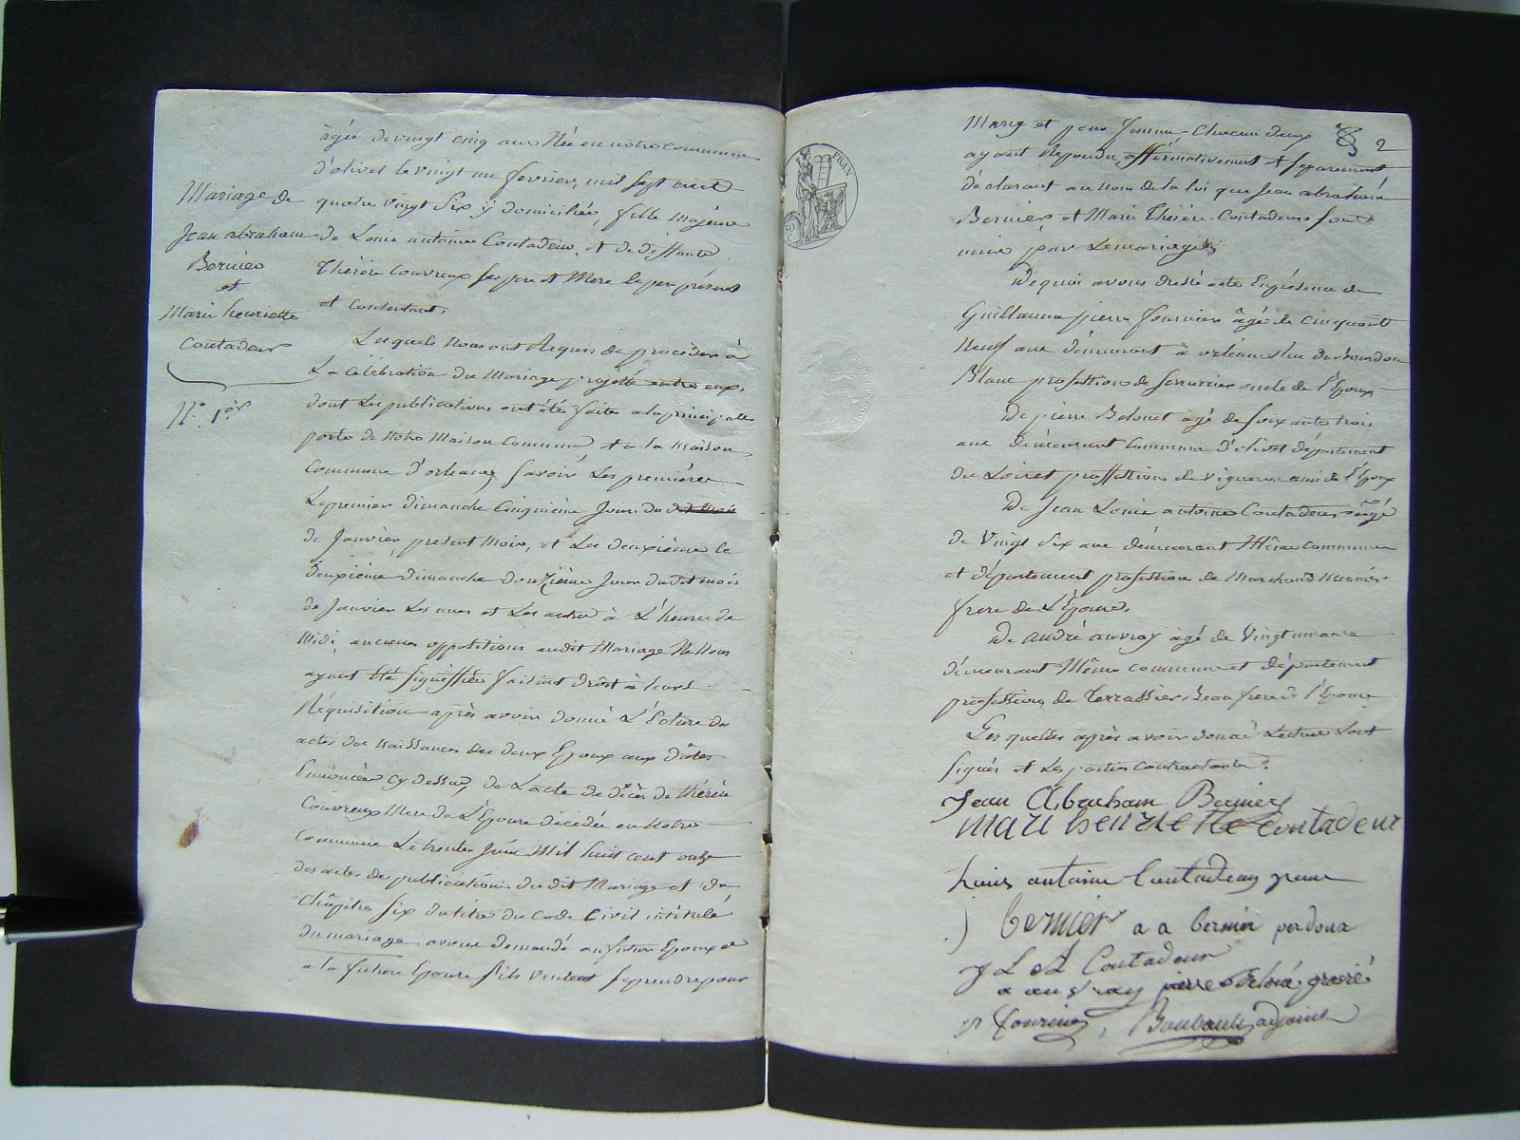 Mariage de
Jean abraham
Bernier
et
Marie henriette
Coutadeur
N.º 1.er
âgée de vingt cinq ans Née en nôtre commune
d'olivet le vingt un fevrier, mil sept cent
quatre vingt Six y domiciliée, fille Majeure
de Louis antoine Coutadeur, et de deffunte
Thérèse Couvreux ses pere et Mere le pere présent
et Contentant.
Lesquels Nous ont Requis de procéder à
La célébration du Mariage projetté entre eux,
dont Les publications ont étés faites a la principalle
porte de Notre Maison Commune et a la maison
Commune d'orleans, Savoir Les premières
Le premier dimanche Cinquième Jour du
de Janvier present Mois, et Les deuxième le
deuxième dimanche douzième Jour du dit mois
de Janvier Les unes et Les autres à L'heure de
Midi, aucunes oppositions audit Mariage Ne Nous
ayant été signiffiées faisant droit à leurs
Réquisition après avoir donné L'Ecture des
actes de Naissances des deux Epoux aux dates
Enoncées cy dessus, de L'acte de décès de thérèse
Couvreux Mere de L'Epouse décédée en Notre
Commune Le trente Juin Mil huit cent onze
des actes de publications du dit Mariage et du
Châpitre Six du titre du Code Civil intitulé
du mariage avons demandé au futur Epoux et
a la future Epouse s'ils veulent se prendre pour
2
FRAN
Mary et pour femme, Chacun d'eux
ayant Répondu affirmativement et separement
déclarant au nom de la loi que Jean abraham
Bernier et Marie Thérèse Coutadeur sont
unis par Le mariage
De quoi avons dressé acte En présence de
Guillaume pierre fournier âgé de Cinquante
Neuf ans demeurant à orléans rue du bourdon
Blanc profession de serrurier oncle de l'Epoux
De pierre Belouet agé de soixante trois
ans demeurant Commune d'olivet département
du Loiret proffession de vigneron ami de l'Epoux
De Jean Louis antoine Coutadeur âgé
de Vingt Six ans demeurant Même commune
et département profession de Marchand
frere de L'Epouse.
De andré auvray agé de Vingt
demeurant Même commune et département
profession de Terrassier Beau frere de l'Epouse
Lesquelles après avoir donné Lecture Sont
signés et Les parties Contractantes.
Jean Abraham Bernier
Marie henriette Coutadeur
Louis antoine Coutadeur pere
bernier a a bernier
J L A Coutadeur
a auvray pierre
p fournier, adjoint